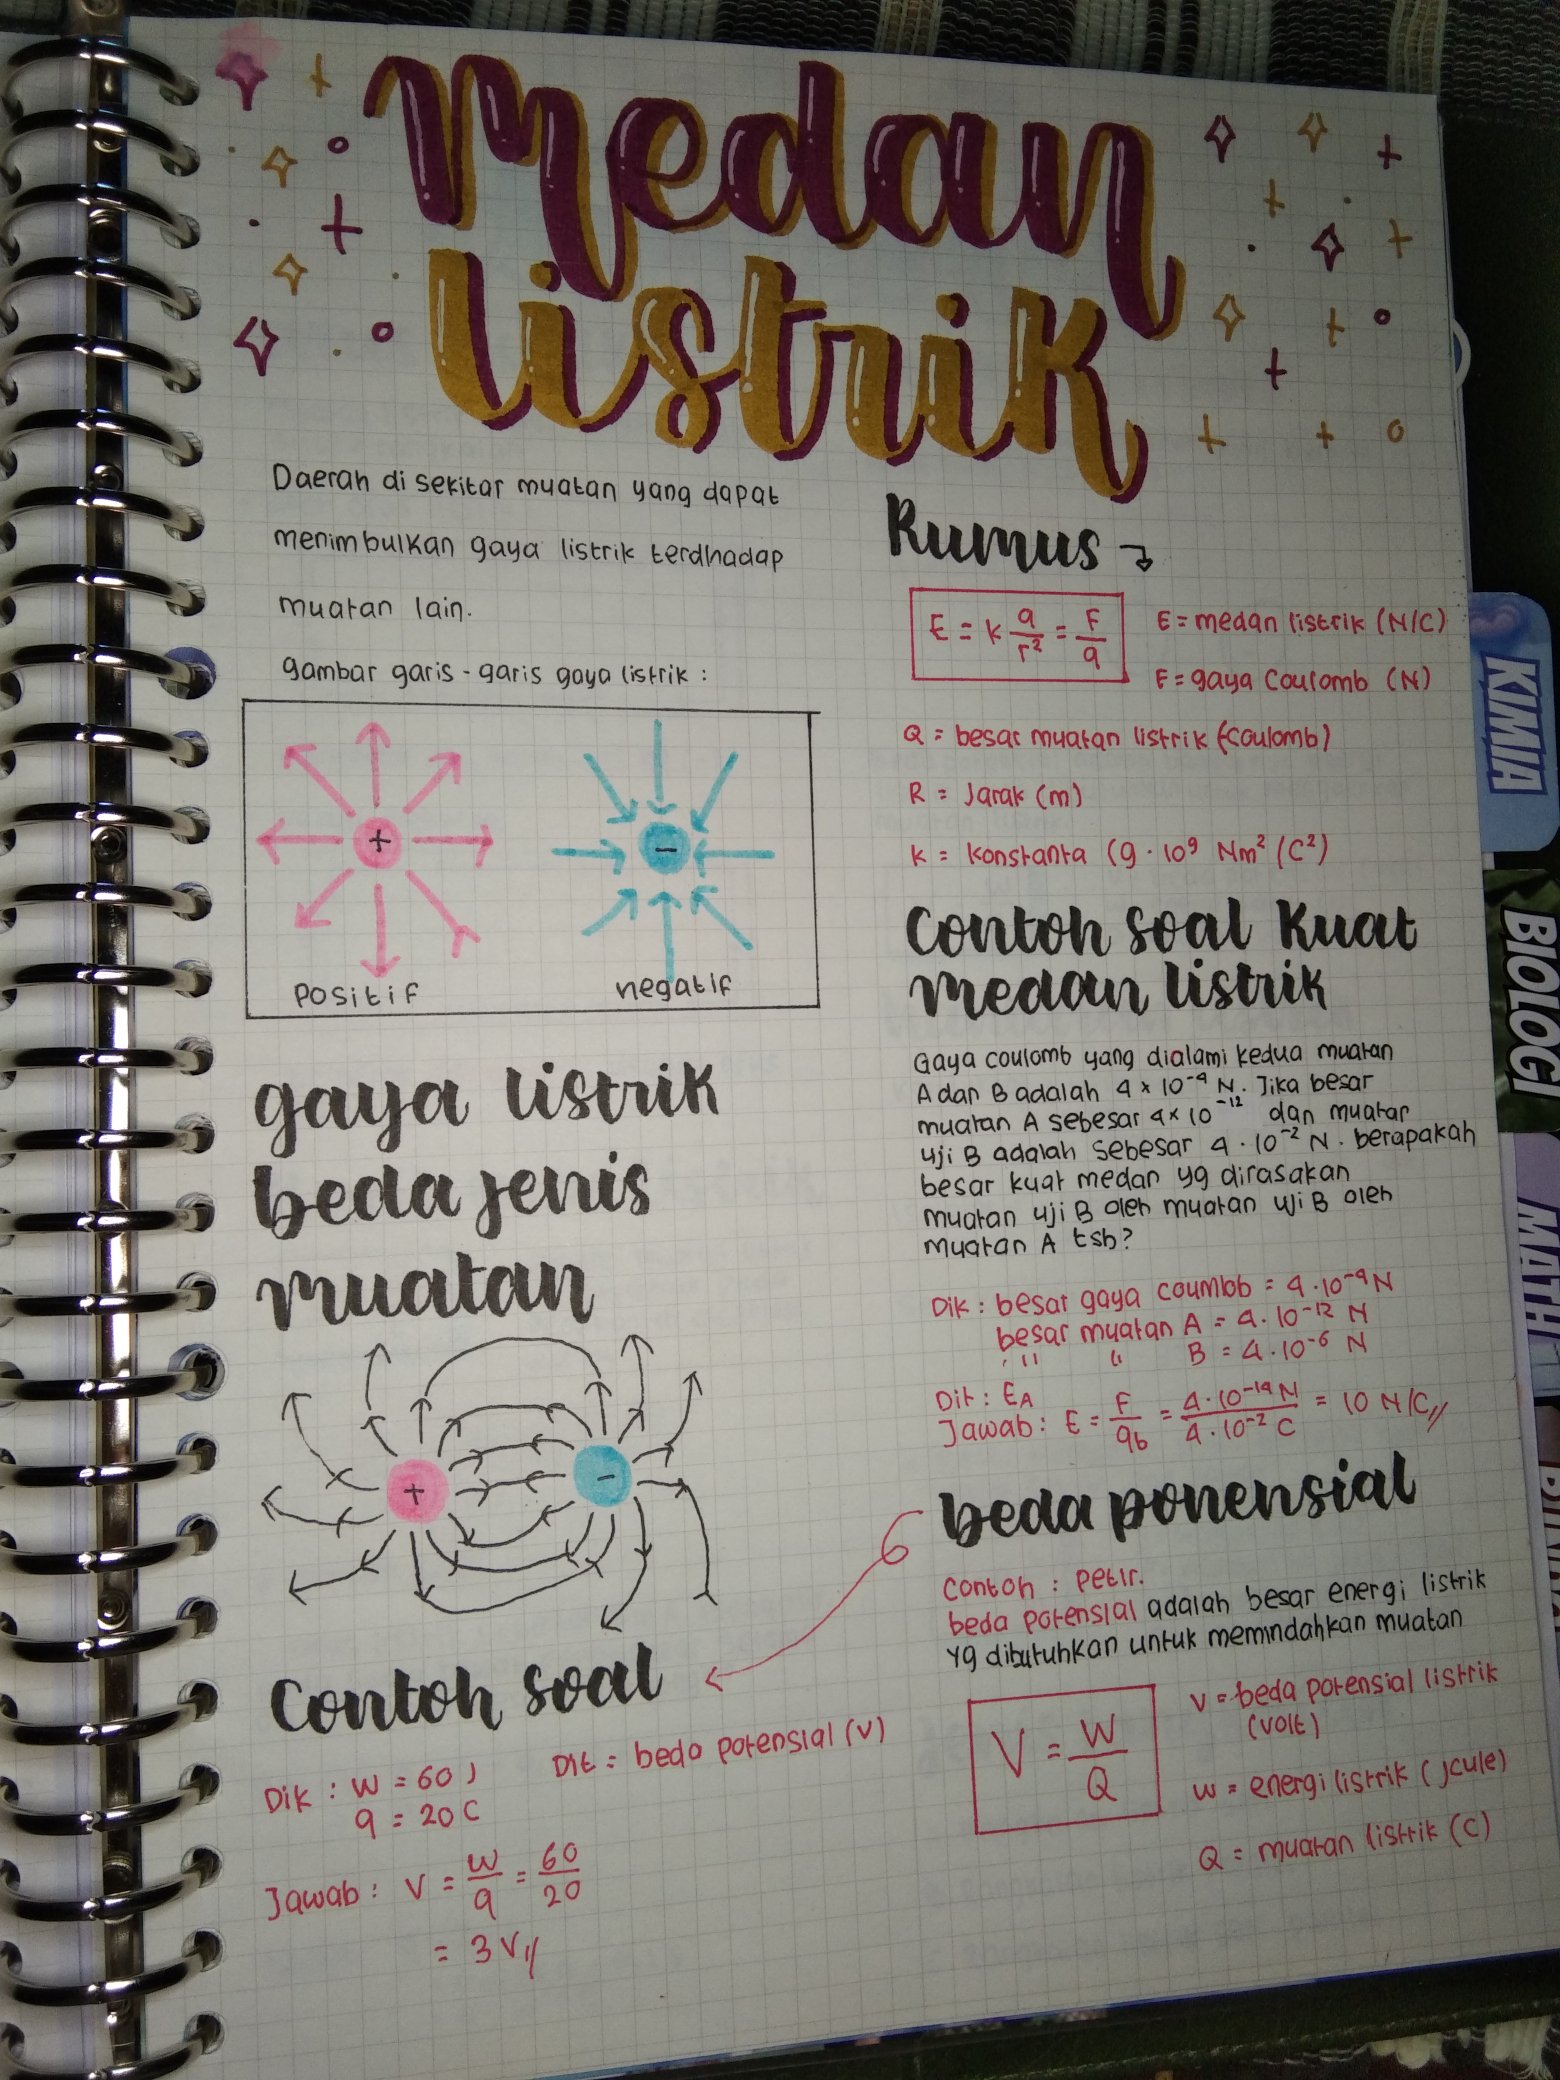 Medan
listrik
Daerah di sekitar muatan yang dapat
menimbulkan gaya listrik terdhadap
muatan lain.
gambar garis-garis gaya listrik :
+
-
positif
negatif
gaya listrik
beda jenis
muatan
+
-
Contoh soal
Dik : W = 60 J
q = 20 C
Dit = beda potensial (v)
Jawab : V = W/q = 60/20
= 3 V//
Rumus
E = k q/r² = F/q
E = medan listrik (N/C)
F = gaya Coulomb (N)
Q = besar muatan listrik (Coulomb)
R = Jarak (m)
K = konstanta (9 · 10⁹ Nm² (C²)
Contoh soal Kuat
medan listrik
Gaya coulomb yang dialami kedua muatan
A dan B adalah 4 x 10⁻⁴ N. Jika besar
muatan A sebesar 4x10⁻¹² dan muatan
uji B adalah sebesar 4 · 10⁻² N. berapakah
besar kuat medan yg dirasakan
muatan uji B oleh muatan uji B oleh
muatan A tsb?
Dik : besar gaya coumlob = 4 · 10⁻⁴ N
besar muatan A = 4 · 10⁻¹² N
" " B = 4 · 10⁻⁶ N
Dit : E_A
Jawab : E = F/qb = 4 · 10⁻¹⁴ N/4 · 10⁻² C = 10 N/C//
beda ponensial
Contoh : petir.
beda potensial adalah besar energi listrik
yg dibutuhkan untuk memindahkan muatan
V = W/Q
V = beda potensial listrik
(volt)
W = energi listrik (joule)
Q = muatan listrik (C)
KIMIA
BIOLOGI
MATH